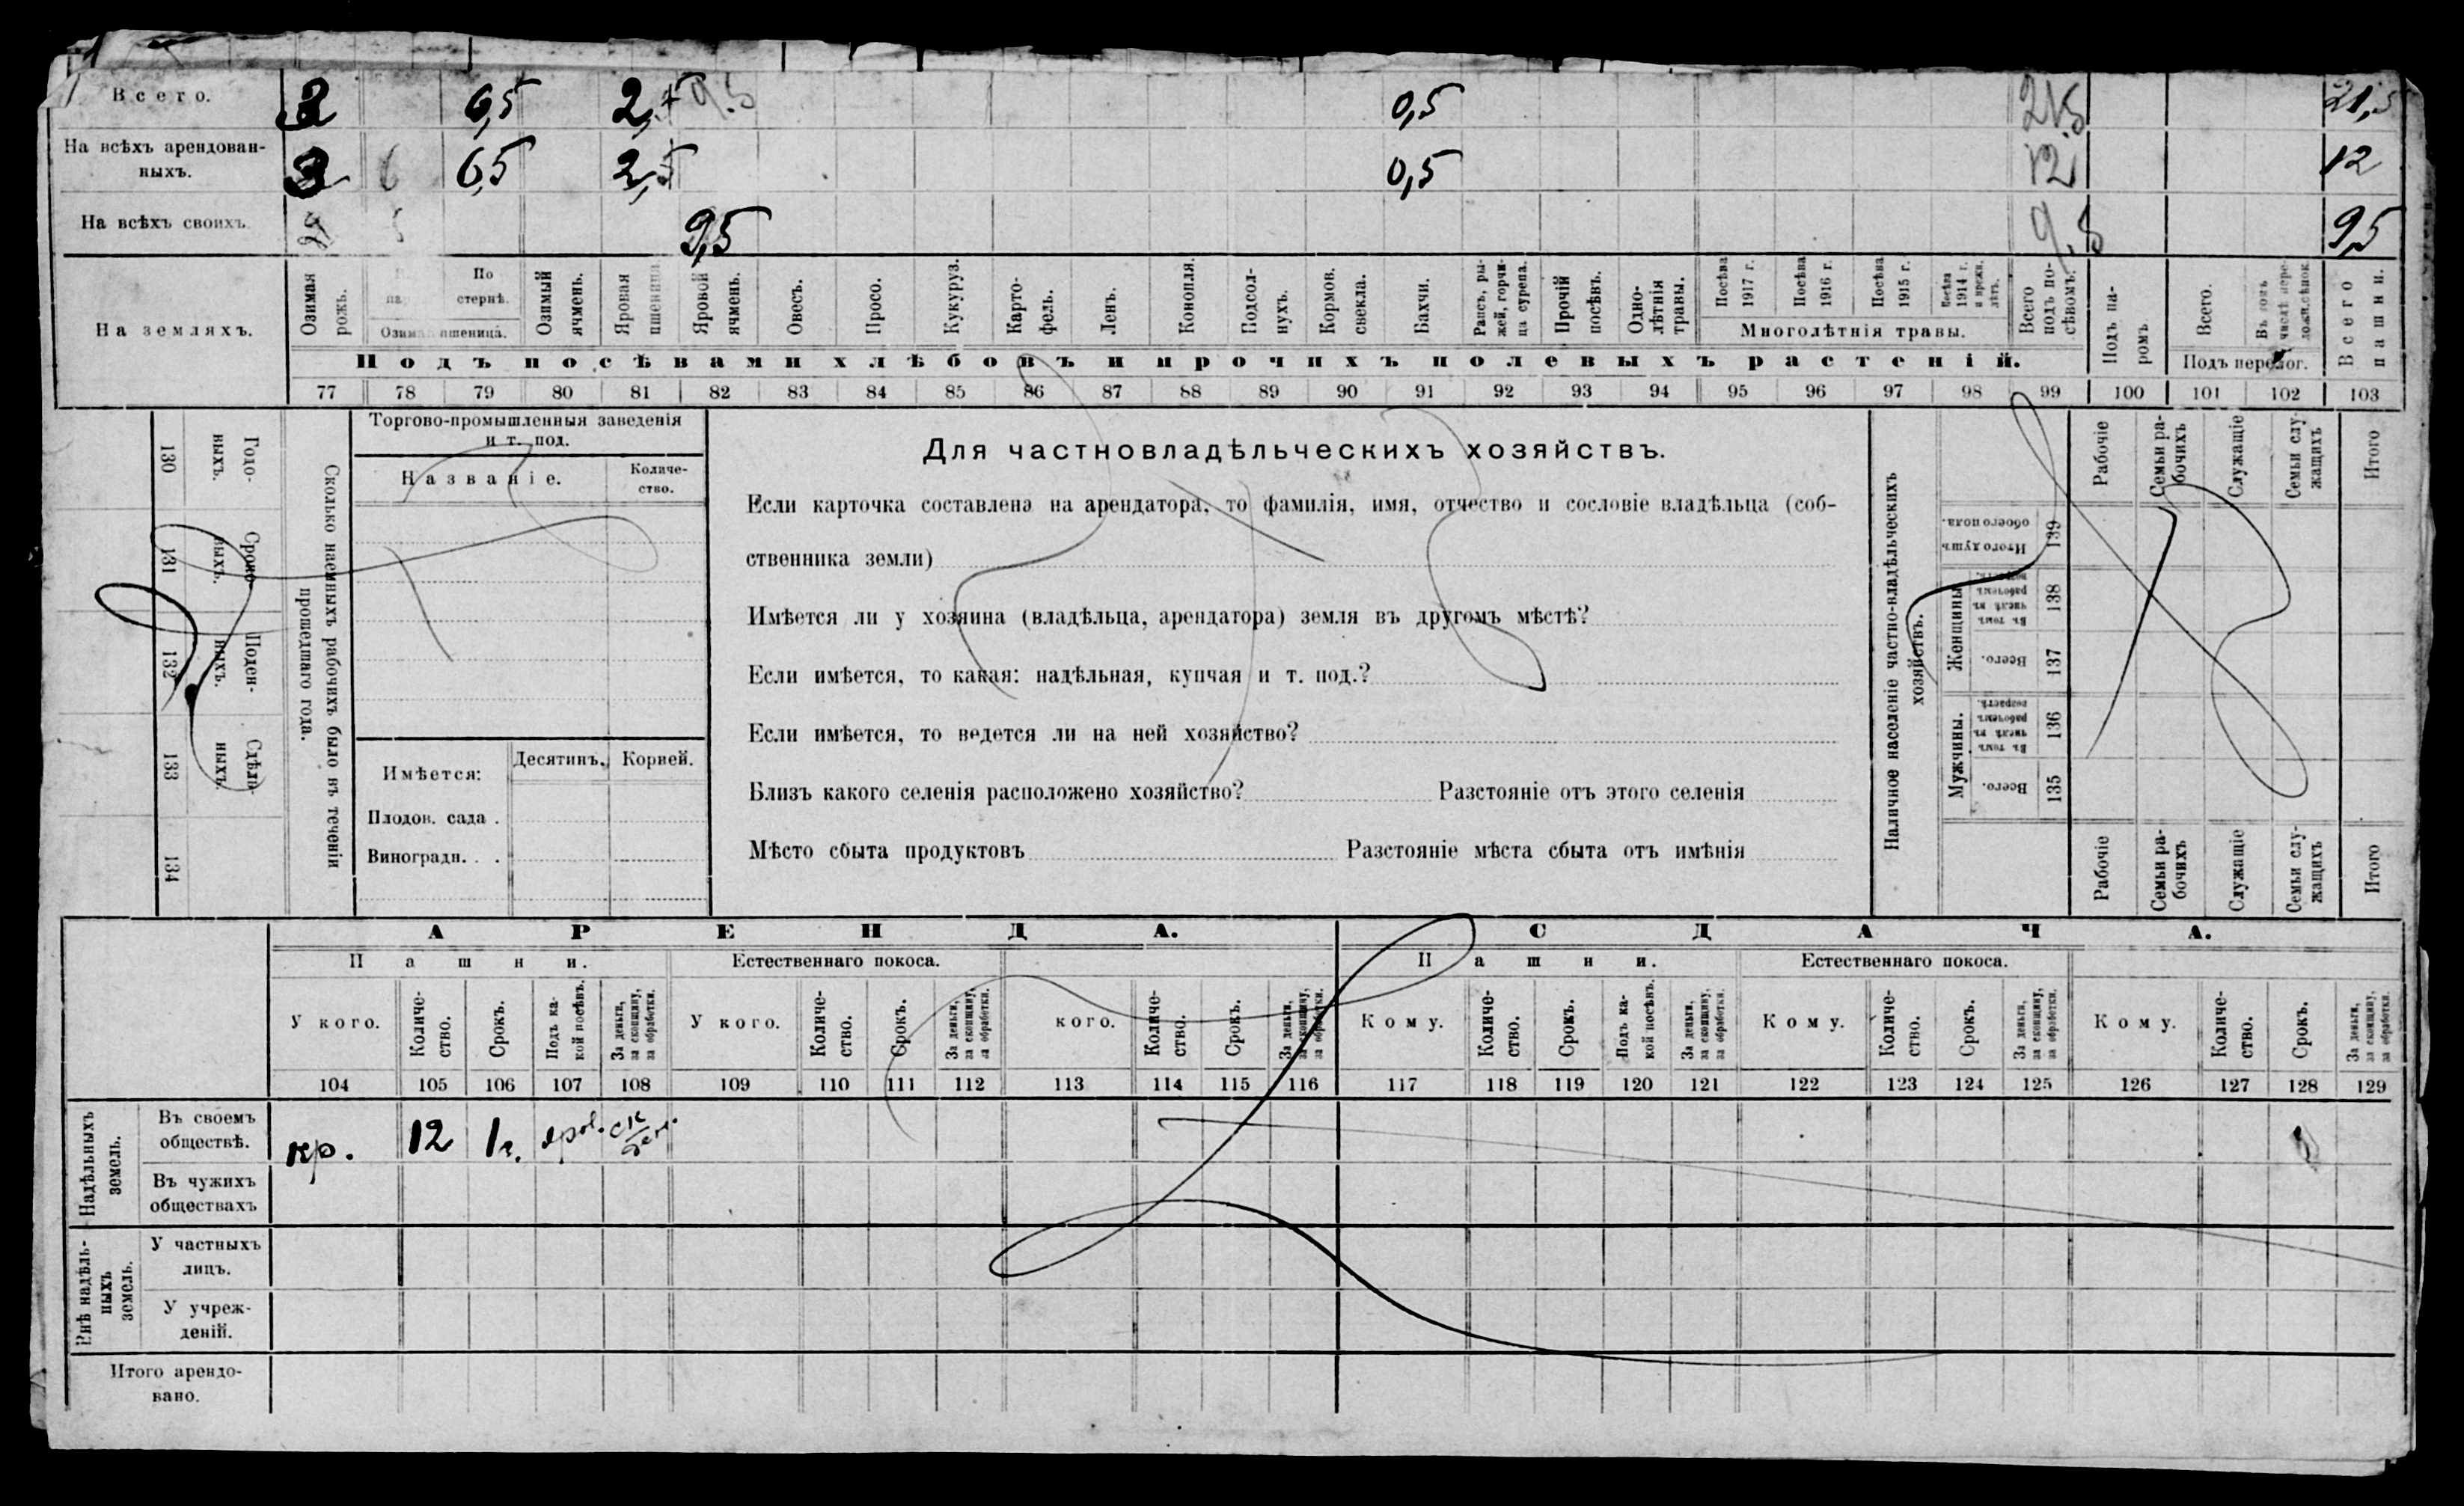 Всего. 3 6,5 2,5 9.5 0,5 21,5 21,5
На всѣхъ арендован-
ныхъ. 3 6 6,5 2,5 0,5 12 12
На всѣхъ своихъ. 9,5 9,5 9,5
На земляхъ.
Озимая рожь.
По стернѣ.
Озимая пшеница.
Озимый ячмень.
Яровая пшеница.
Яровой ячмень.
Овесъ.
Просо.
Кукуруз.
Карто-
фель.
Ленъ.
Конопля.
Подсол-
нухъ.
Кормов.
свекла.
Бахчи.
Рапсъ, ры-
жей, горчи-
ца сурепа.
Прочій
посѣвъ.
Одно-
лѣтнія
травы.
Посѣва
1917 г.
Посѣва
1916 г.
Посѣва
1915 г.
Посѣва
1914 г.
и прежн.
лѣтъ.
Многолѣтнія травы.
Всего
подъ по-
сѣвомъ.
Подъ па-
ромъ.
Всего.
Въ томъ
числѣ пере-
Подъ перелог.
Всего
пашни.
Подъ посѣвами хлѣбовъ и прочихъ полевыхъ растеній.
77 78 79 80 81 82 83 84 85 86 87 88 89 90 91 92 93 94 95 96 97 98 99 100 101 102 103
Годо-
выхъ.
130
Сроко-
выхъ.
131
Поден-
ныхъ.
132
Сдѣль-
ныхъ.
133
134
Сколько наемныхъ рабочихъ было въ теченіи
прошедшаго года.
Торгово-промышленныя заведенія
и т. под.
Названіе.
Количе-
ство.
Имѣется:
Десятинъ.
Корней.
Плодов. сада .
Виноградн. . .
Для частновладѣльческихъ хозяйствъ.
Если карточка составлена на арендатора, то фамилія, имя, отчество и сословіе владѣльца (соб-
ственника земли)
Имѣется ли у хозяина (владѣльца, арендатора) земля въ другомъ мѣстѣ?
Если имѣется, то какая: надѣльная, купчая и т. под.?
Если имѣется, то ведется ли на ней хозяйство?
Близъ какого селенія расположено хозяйство? Разстояніе отъ этого селенія
Мѣсто сбыта продуктовъ Разстояніе мѣста сбыта отъ имѣнія
Наличное населеніе частно-владѣльческихъ
хозяйствъ.
Итого душъ
обоего пола.
139
Женщины.
Въ томъ
числѣ въ
рабочемъ
возрастѣ.
138
Всего.
137
Мужчины.
Въ томъ
числѣ въ
рабочемъ
возрастѣ.
136
Всего.
135
Рабочіе
Семьи ра-
бочихъ
Служащіе
Семьи слу-
жащихъ
Итого
Рабочіе
Семьи ра-
бочихъ
Служащіе
Семьи слу-
жащихъ
Итого
АРЕНДА. СДАЧА.
Пашни. Естественнаго покоса. Пашни. Естественнаго покоса.
У кого.
Количе-
ство.
Срокъ.
Подъ ка-
кой посѣвъ.
За деньги,
за скопщину,
за обработки.
У кого.
Количе-
ство.
Срокъ.
За деньги,
за скопщину,
за обработки.
кого.
Количе-
ство.
Срокъ.
За деньги,
за скопщину,
за обработки.
Кому.
Количе-
ство.
Срокъ.
Подъ ка-
кой посѣвъ.
За деньги,
за скопщину,
за обработки.
Кому.
Количе-
ство.
Срокъ.
За деньги,
за скопщину,
за обработки.
Кому.
Количе-
ство.
Срокъ.
За деньги,
за скопщину,
за обработки.
104 105 106 107 108 109 110 111 112 113 114 115 116 117 118 119 120 121 122 123 124 125 126 127 128 129
Надѣльныхъ
земель.
Въ своемъ
обществѣ.
кр. 12 1 г. яров. ск
Въ чужихъ
обществахъ
Внѣ надѣль-
ныхъ
земель.
У частныхъ
лицъ.
У учреж-
деній.
Итого арендо-
вано.